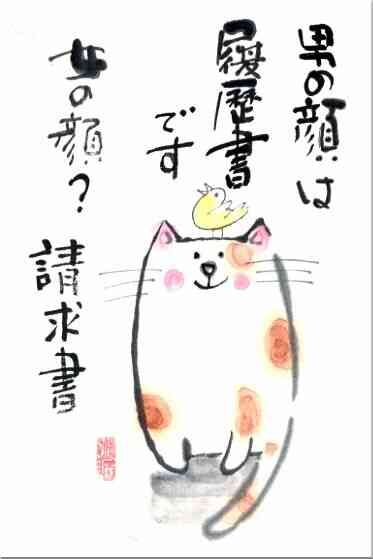 男の顔は
履歴書
です
女の顔？
請求書